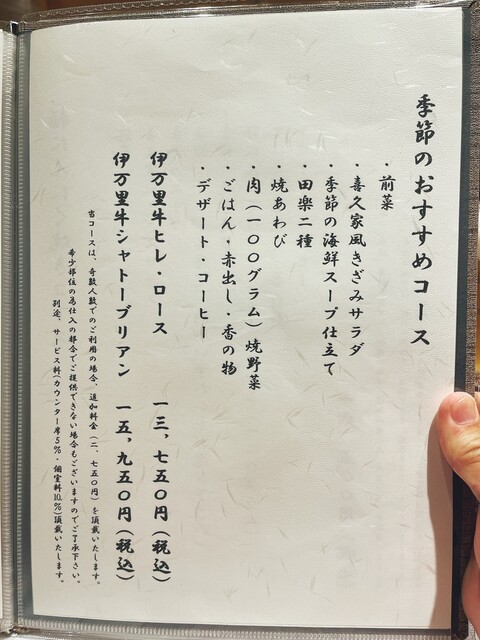 季節のおすすめコース
・前菜
・喜久家風きざみサラダ
・季節の海鮮スープ仕立て
・田楽二種
・焼あわび
・肉(一〇〇グラム)焼野菜
・ごはん・赤出し・香の物
・デザート・コーヒー
伊万里牛ヒレ・ロース 一三,七五〇円(税込)
伊万里牛シャトーブリアン 一五,九五〇円(税込)
当コースは、奇数人数でのご利用の場合、追加料金(二、七五〇円)を頂戴いたします。
希少部位の為仕入の都合でご提供できない場合もございますのでご了承下さい。
別途、サービス料(カウンター席5%・個室料10%)頂戴いたします。